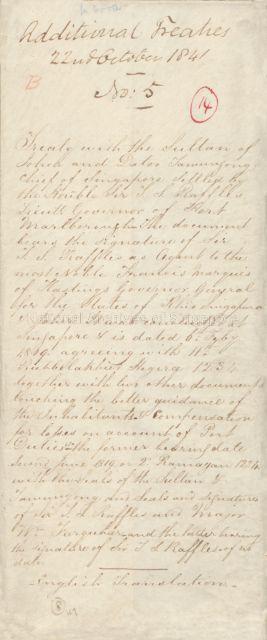 Additional Treaties
22nd October 1841
B
No: 5
14
Treaty with the Sultan of
Johor and Datoo Tamungong
Chief of Singapore settled by
the Honble Sir T. S. Raffles
Lieutt Governor of Fort
Marlborough The document
bears the Signature of Sir
T. S. Raffles as Agent to the
most Noble Francis marquis
of Hastings Governor General
for the States of Rhio Singapore
Johor & was concluded at
Singapore & is dated 6 Feby
1819 agreeing with 11th
1234
together with two other documents
touching the better guidance of
the Inhabitants & Compensation
for losses on account of Port
Duties the former bearing date
June 1819 or 2d Ramazan 1234
with the Seals of the Sultan &
Tamungong and Seals and signatures
of Sir T S Raffles and Major
Wm Farquhar and the latter bearing
the signature of Sir T S Raffles of no
date
English Translation
8
National Archives of Singapore